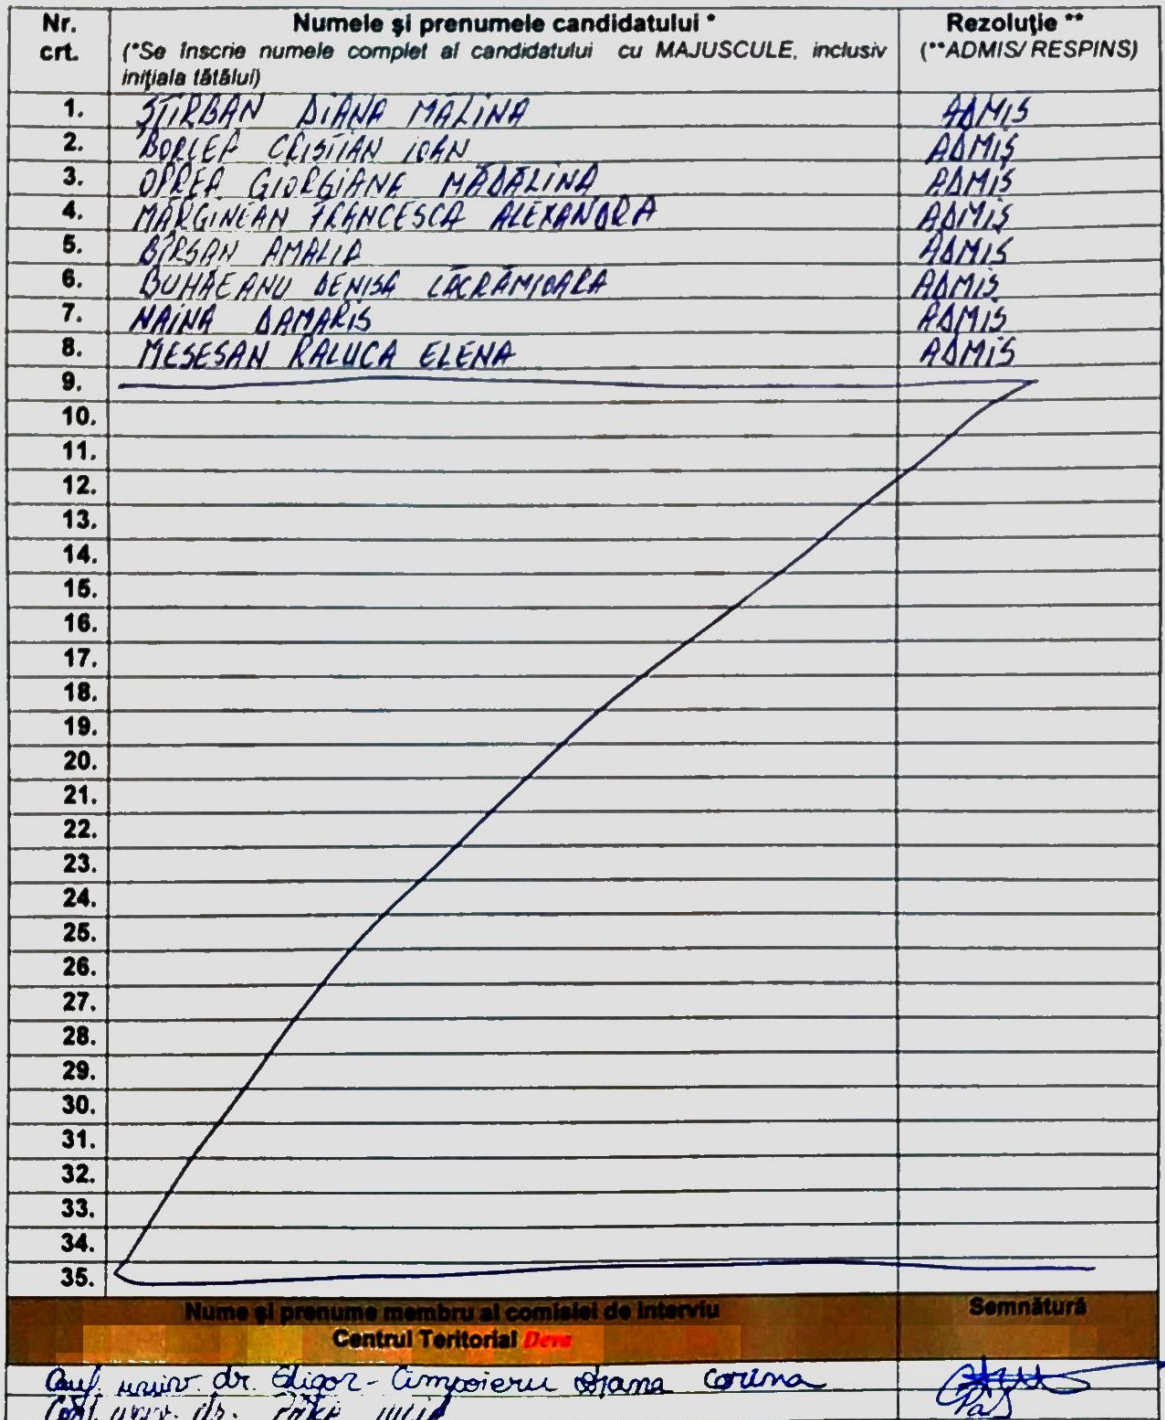 Nr. crt. Numele și prenumele candidatului * Rezoluție **
(*Se înscrie numele complet al candidatului cu MAJUSCULE, inclusiv inițiala tătălui) (**ADMIS/ RESPINS)
1. ȘTIRBAN DIANA MĂLINA ADMIS
2. BORLEA CRISTIAN IOAN ADMIS
3. OPREA GIORGIANA MĂDĂLINA ADMIS
4. MĂRGINEAN FRANCESCA ALEXANDRA ADMIS
5. BÎRSAN AMALIA ADMIS
6. BUHĂEANU DENISA LĂCRĂMIOARA ADMIS
7. NAINA DAMARIS ADMIS
8. MESESAN RALUCA ELENA ADMIS
9.
10.
11.
12.
13.
14.
15.
16.
17.
18.
19.
20.
21.
22.
23.
24.
25.
26.
27.
28.
29.
30.
31.
32.
33.
34.
35.
Nume și prenume membru al comisiei de interviu Semnătură
Centrul Teritorial Deva
Conf. univ. dr. Diana Corina
Conf. univ. dr.